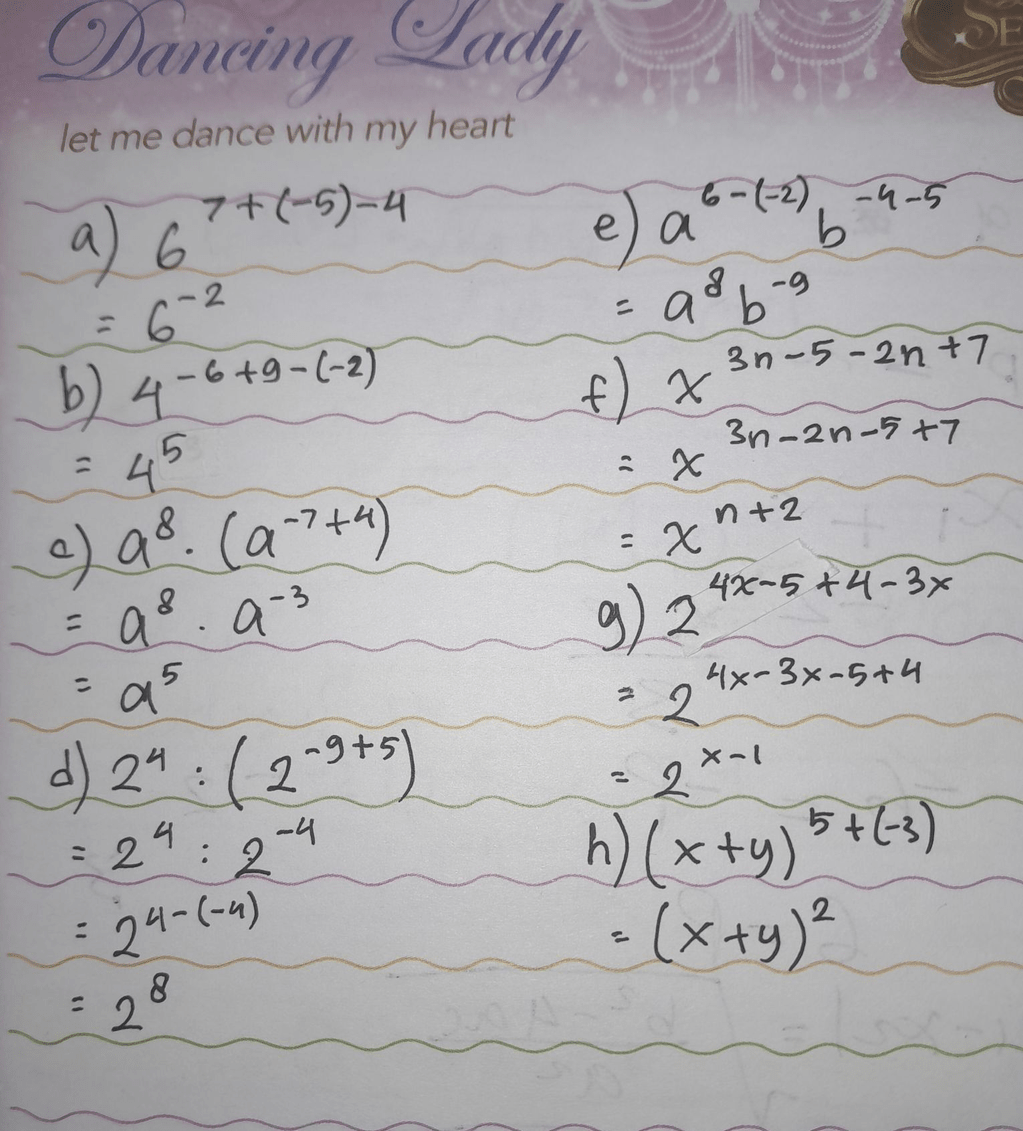 Dancing Lady
SE
let me dance with my heart
a) 6^{7+(-5)-4}
= 6^{-2}
b) 4^{-6+9-(-2)}
= 4^{5}
c) a^{8}. (a^{-7+4})
= a^{8} . a^{-3}
= a^{5}
d) 2^{4} : (2^{-9+5})
= 2^{4} : 2^{-4}
= 2^{4-(-4)}
= 2^{8}
e) a^{6-(-2)} b^{-4-5}
= a^{8} b^{-9}
f) x^{3n-5-2n+7}
= x^{3n-2n-5+7}
= x^{n+2}
g) 2^{4x-5+4-3x}
= 2^{4x-3x-5+4}
= 2^{x-1}
h) (x+y)^{5+(-3)}
= (x+y)^{2}